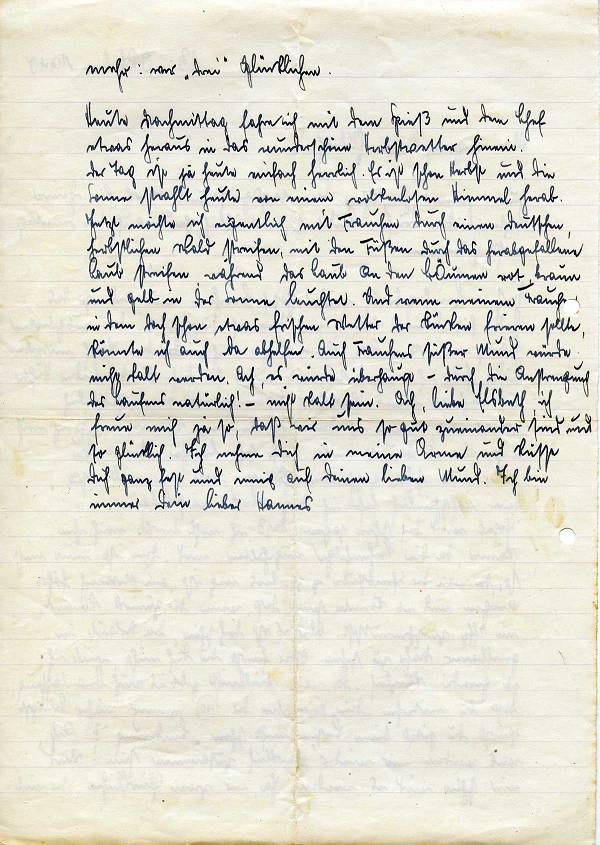 mehr: wir „drei" Glücklichen.
Heute Nachmittag fahre ich mit dem Spieß und dem Chef
etwas heraus in das wunderschöne Herbstwetter hinein.
Der Tag ist ja heute einfach herrlich. Es ist schon Herbst und die
Sonne strahlt heute von einem wolkenlosen Himmel herab.
Jetzt möchte ich eigentlich mit Frauchen durch einen deutschen,
herbstlichen Wald streifen, mit den Füßen durch das herabgefallene
Laub streifen während das Laub an den Bäumen rot, braun
und gelb in der Sonne leuchtet. Und wenn meinem Frauchen
in dem doch schon etwas frischen Wetter der Rücken frieren sollte,
könnte ich auch da abhelfen. Auch Frauchens süßer Mund würde
nicht kalt werden. Ach, es würde überhaupt – durch die Anstrengung
des Laufens natürlich! – nicht kalt sein. Ach, liebe Elsbeth ich
freue mich ja so, daß wir uns so gut zueinander sind und
so glücklich. Ich nehme Dich in meine Arme und küsse
Dich ganz fest und innig auf deinen lieben Mund. Ich bin
immer Dein lieber Hannes